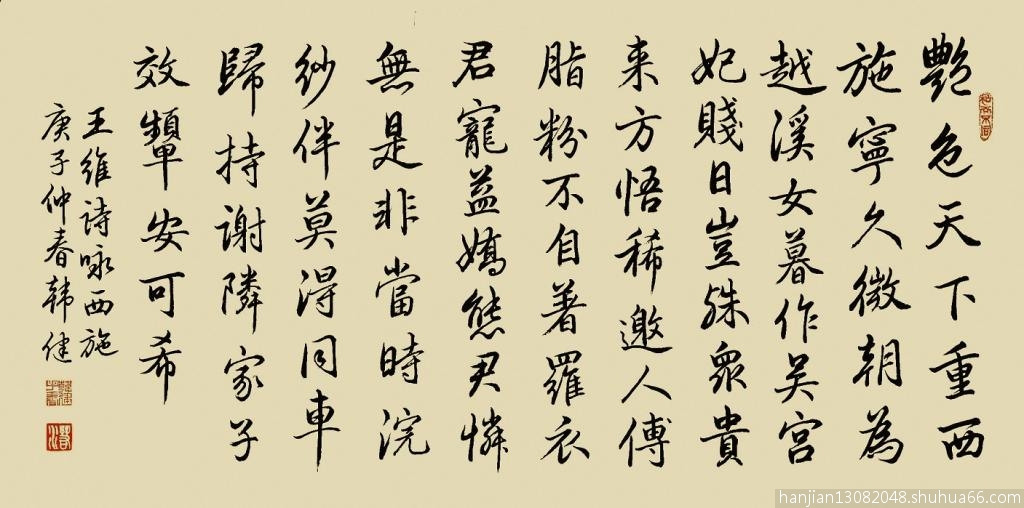 艷色天下重西
施寧久微朝為
越溪女暮作吴宫
妃賤日豈殊衆貴
来方悟稀邀人傅
脂粉不自著羅衣
君寵益嬌態君憐
無是非當時浣
紗伴莫得同車
歸持謝隣家子
效顰安可希
王維诗咏西施
庚子仲春韩健
hanjian13082048.shuhua66.com